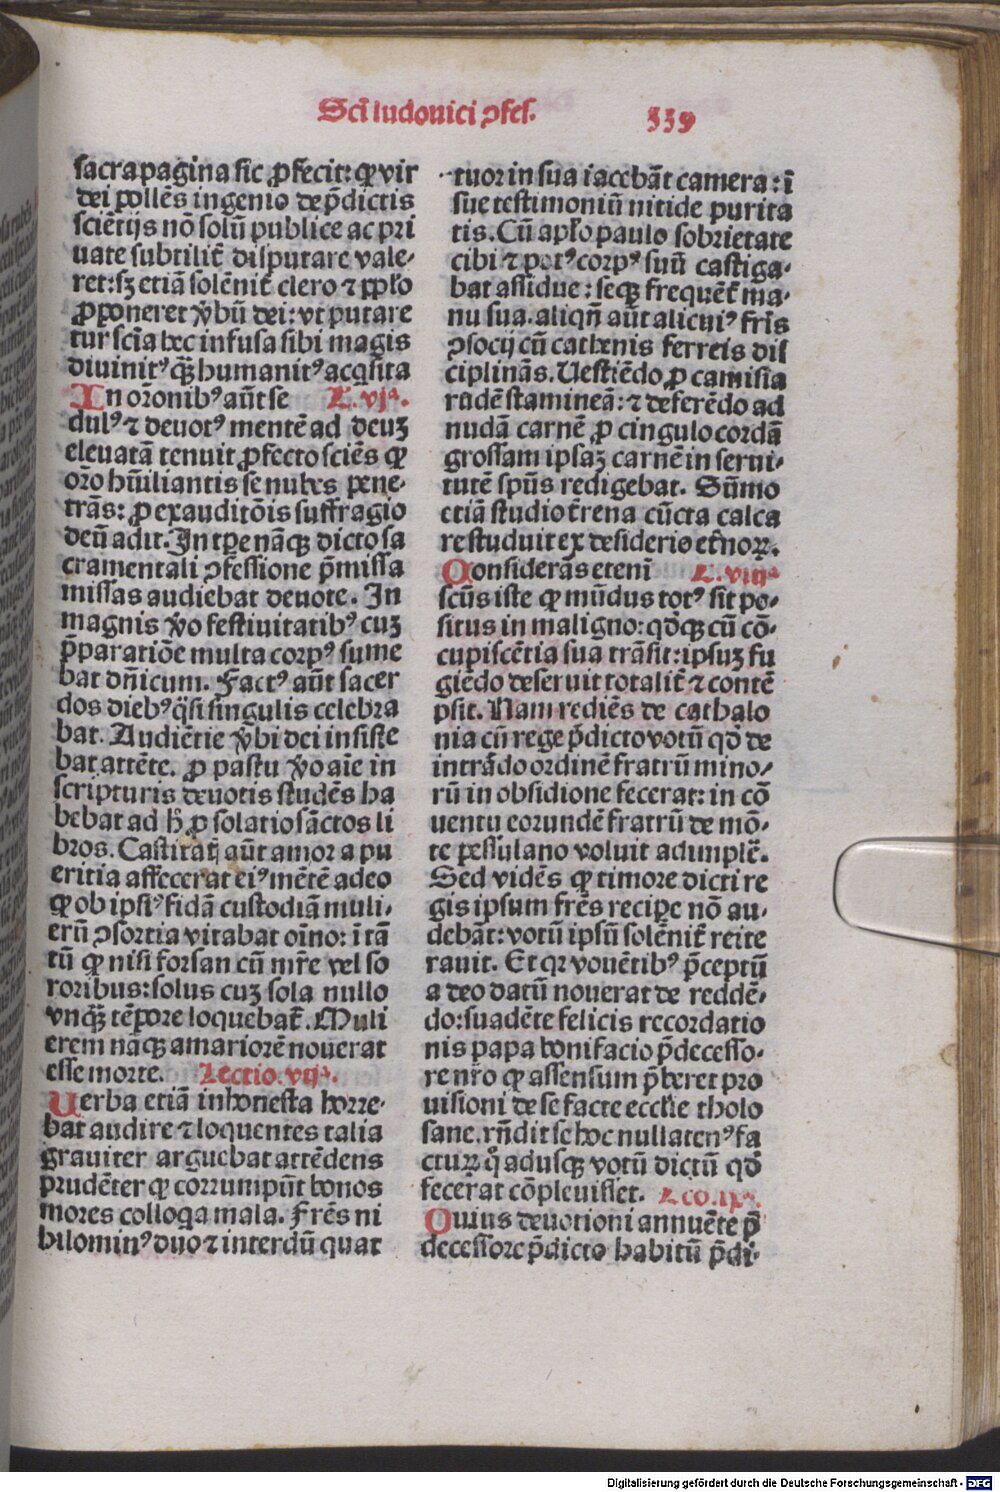 Scī ludouici ꝯfeſ.
339
ſacra pagina ſic ꝓfecit: ꝙ vir
dei pollēs ingenio de p̄dictis
ſciētijs nō ſolū publice ac pri
uate ſubtilit̄ diſputare vale⸗
ret: ſꝫ etiā ſolēnit̄ clero ⁊ pp̄lo
ꝓponeret v̓bū dei: vt putare
tur ſcīa hec infuſa ſibi magis
diuinitꝰ q̄ꝫ humanitꝰ acq̄ſita
In orōnibꝰ aūt ſe L. vjᵃ.
dulꝰ ⁊ deuotꝰ mentē ad deuꝫ
eleuatā tenuit ꝓfecto ſciēs ꝙ
orō hūiliantis ſe nubes pene⸗
trās: ꝓ exauditōis ſuffragio
deū adit. In tꝑe nāqꝫ dicto ſa
cramentali ꝯfeſſione p̄miſſa
miſſas audiebat deuote. In
magnis v̓o feſtiuitatibꝰ cuꝫ
p̄paratiōe multa corpꝰ ſume
bat dn̄icum. Factꝰ aūt ſacer
dos diebꝰ q̄ſi ſingulis celebra
bat. Audiētie v̓bi dei inſiſte
bat attēte. ꝓ paſtu v̓o aīe in
ſcripturis deuotis ſtudēs ha
bebat ad h̄ ꝓ ſolatio ſāctos li
bros. Caſtitatꝭ aūt amor a pu
eritia affecerat eiꝰ mētē adeo
ꝙ ob ipſiꝰ fidā cuſtodiā muli⸗
erū ꝯſortia vitabat oīno: ī tā
tū ꝙ niſi forſan cū mr̄e vel ſo
roribus: ſolus cuꝫ ſola nullo
vnq̄ꝫ tēpore loquebat̄. Muli
erem nāqꝫ amariorē nouerat
eſſe morte. Lectio. vijᵃ.
Verba etiā inhoneſta horre⸗
bat audire ⁊ loquentes talia
grauiter arguebat attēdens
prudēter ꝙ corrumpūt bonos
mores colloq̄a mala. Frēs ni
hilominꝰ duo ⁊ interdū quat
tuor in ſua iacebāt camera: ī
ſue teſtimoniū nitide purita
tis. Cū apl̓o paulo ſobrietate
cibi ⁊ potꝰ corpꝰ ſuū caſtiga⸗
bat aſſidue: ſeqꝫ frequēt̄ ma⸗
nu ſua. aliqn̄ aūt alicuiꝰ fr̄is
ꝯſocij cū cathenis ferreis diſ
ciplināſ. Ueſtiēdo ꝓ camiſia
rudē ſtamineā: ⁊ deferēdo ad
nudā carnē ꝓ cingulo cordā
groſſam ipſaꝫ carnē in ſerui⸗
tutē ſpūs redigebat. Sūmo
etiā ſtudio t̄rena cūcta calca
re ſtuduit ex deſiderio et̄noꝝ.
Conſiderās etenī L. viijᵃ
ſcūs iſte ꝙ mūdus totꝰ ſit po⸗
ſitus in maligno: qd̓qꝫ cū cō⸗
cupiſcētia ſua trāſit: ipſuꝫ fu
giēdo deſeruit totalit̄ ⁊ contē
pſit. Nam rediēs de cathalo
nia cū rege p̄dicto votū qd̓ de
intrādo ordinē fratrū mino⸗
rū in obſidione fecerat: in cō
uentu eorundē fratrū de mō⸗
te peſſulano voluit adimplē.
Sed vidēs ꝙ timore dicti re
gis ipſum frēs recipe nō au⸗
debāt: votū ipſū ſolēnit̄ reite
rauit. Et qꝛ vouētibꝰ p̄ceptū
a deo datū nouerat de reddē⸗
do: ſuadēte felicis recordatio
nis papa bonifacio p̄deceſſo⸗
re nr̄o ꝙ aſſenſum p̄beret pro
uiſioni de ſe facte eccl̓ie tholo
ſane. rn̄dit ſe hoc nullatenꝰ fa
cturꝝ q̊ aduſqꝫ votū dictū qd̓
fecerat cōpleuiſſet. Leo. ixᵃ.
Cuius deuotioni annuēte p̄
deceſſore p̄dicto habitū p̄di⸗
Digitalisierung gefördert durch die Deutsche Forschungsgemeinschaft - DFG